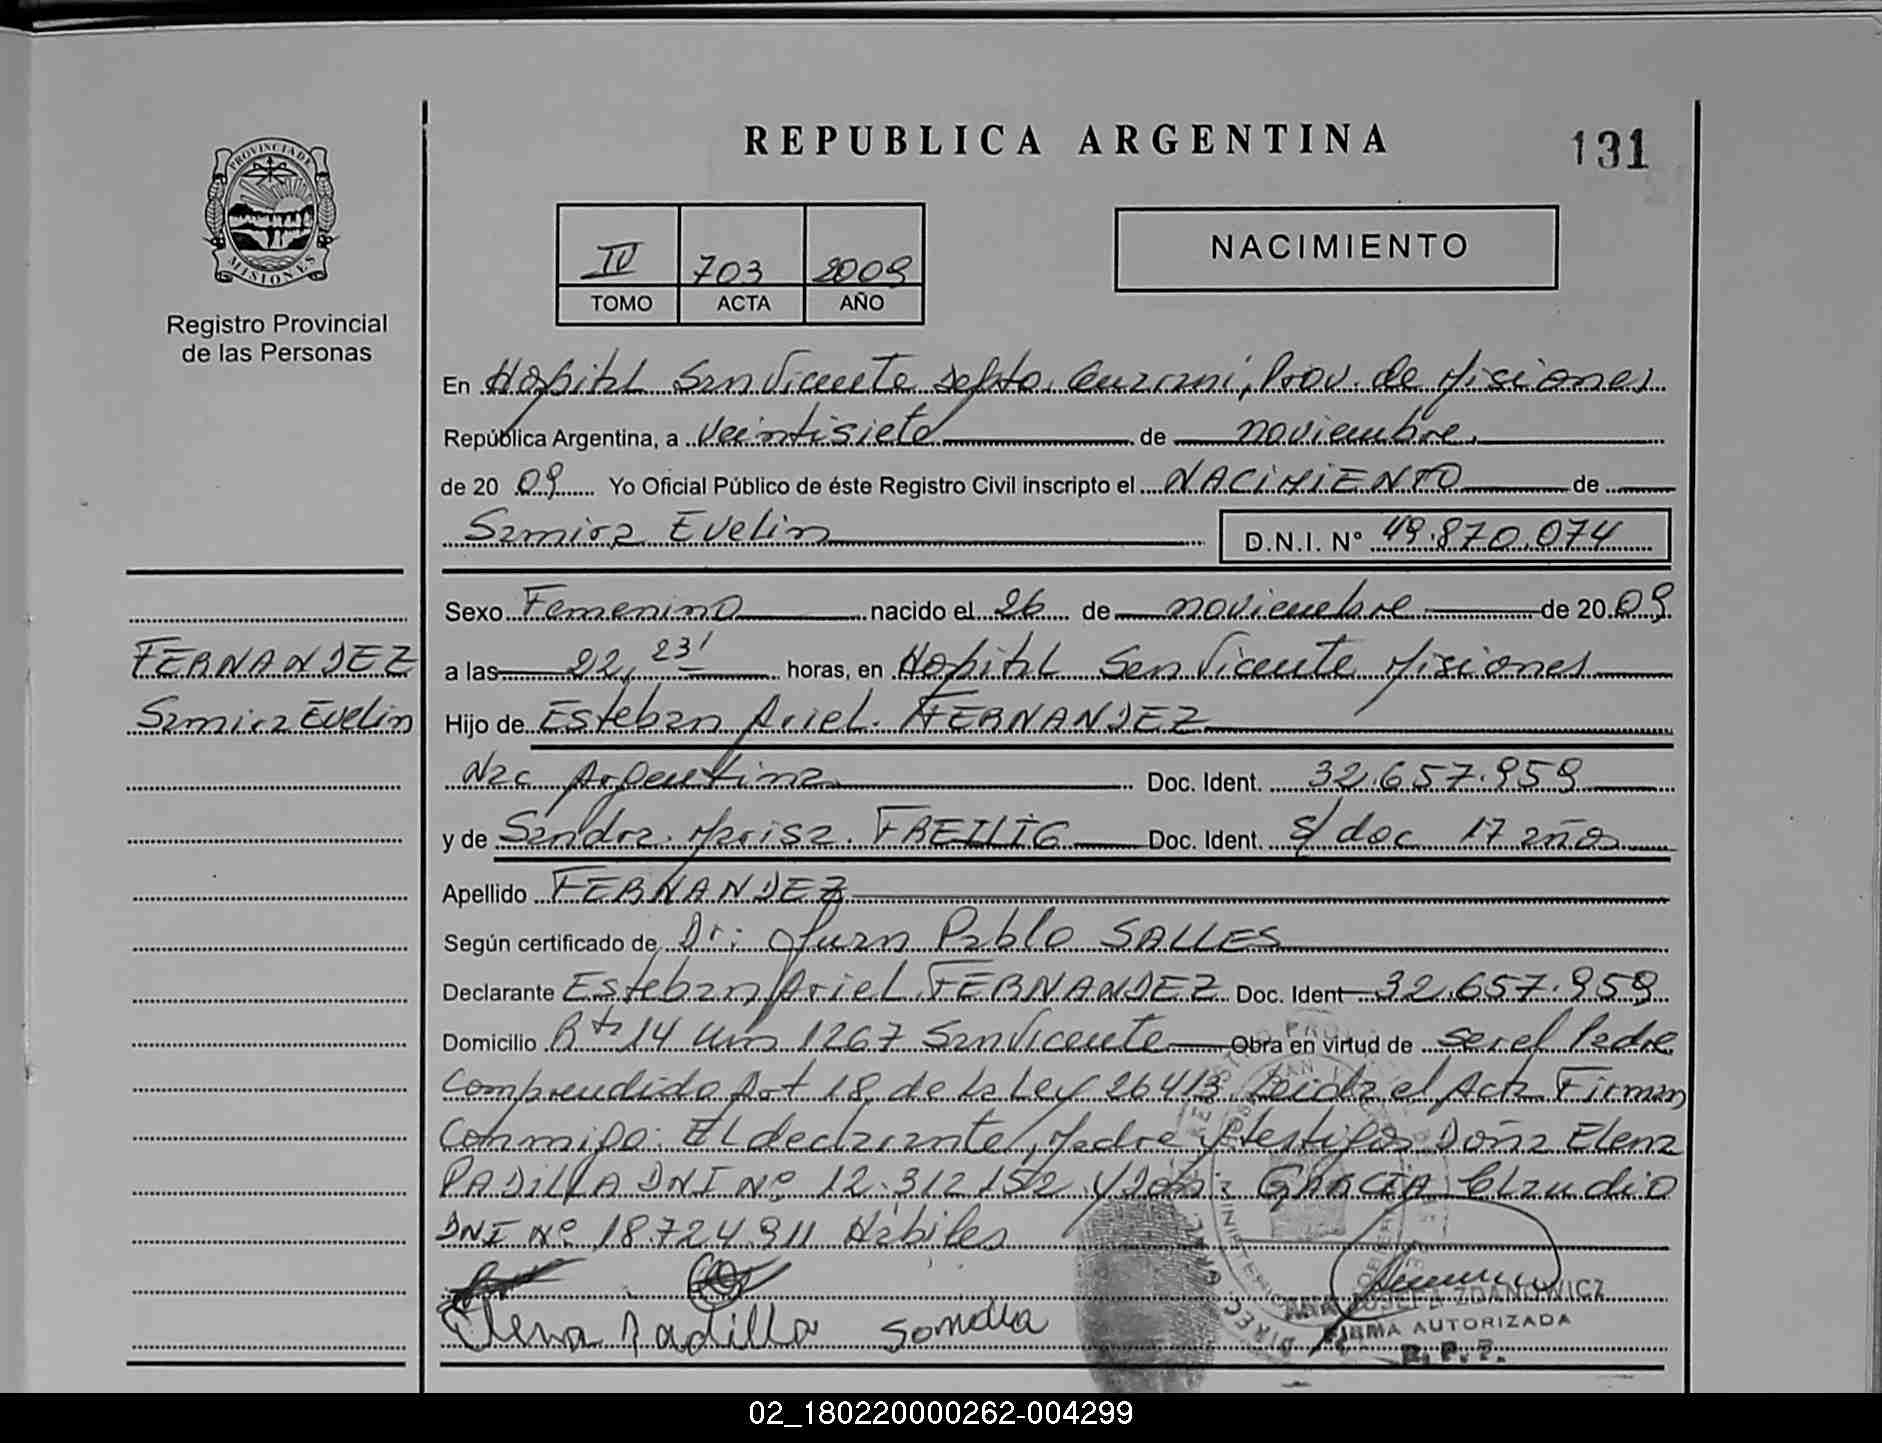 REPUBLICA ARGENTINA
131
PROVINCIA DE
MISIONES
Registro Provincial
de las Personas
IV 703 2009
TOMO ACTA AÑO
NACIMIENTO
En Hospital San Vicente Depto. Guarani, Prov. de Misiones
República Argentina, a Veintisiete de noviembre
de 20 09 Yo Oficial Público de éste Registro Civil inscripto el NACIMIENTO de
Samira Evelin D.N.I. N° 49.870.074
FERNANDEZ
Samira Evelin
Sexo Femenino nacido el 26 de noviembre de 20 09
a las 22, 23' horas, en Hospital San Vicente Misiones
Hijo de Esteban Ariel. FERNANDEZ
Nac Argentina Doc. Ident. 32.657.959
y de Sandra. Marisa. FREILIG Doc. Ident. s/ doc 17 años
Apellido FERNANDEZ
Según certificado de Dr: Juan Pablo SALLES
Declarante Esteban Ariel FERNANDEZ Doc. Ident 32.657.959
Domicilio Rta 14 Km 1267 San Vicente Obra en virtud de ser el Padre
Comprendido Art 18 de la Ley 26413 Leida el Acta Firman
Conmigo: El declarante, Madre y testigos Doña Elena
PADILLA DNI Nº 12.312.152 y Don: GARCIA Claudio
DNI Nº 18.724.911 Hábiles
Elena Padilla
ZDANOWICZ
FIRMA AUTORIZADA
R. P. P.
02_180220000262-004299